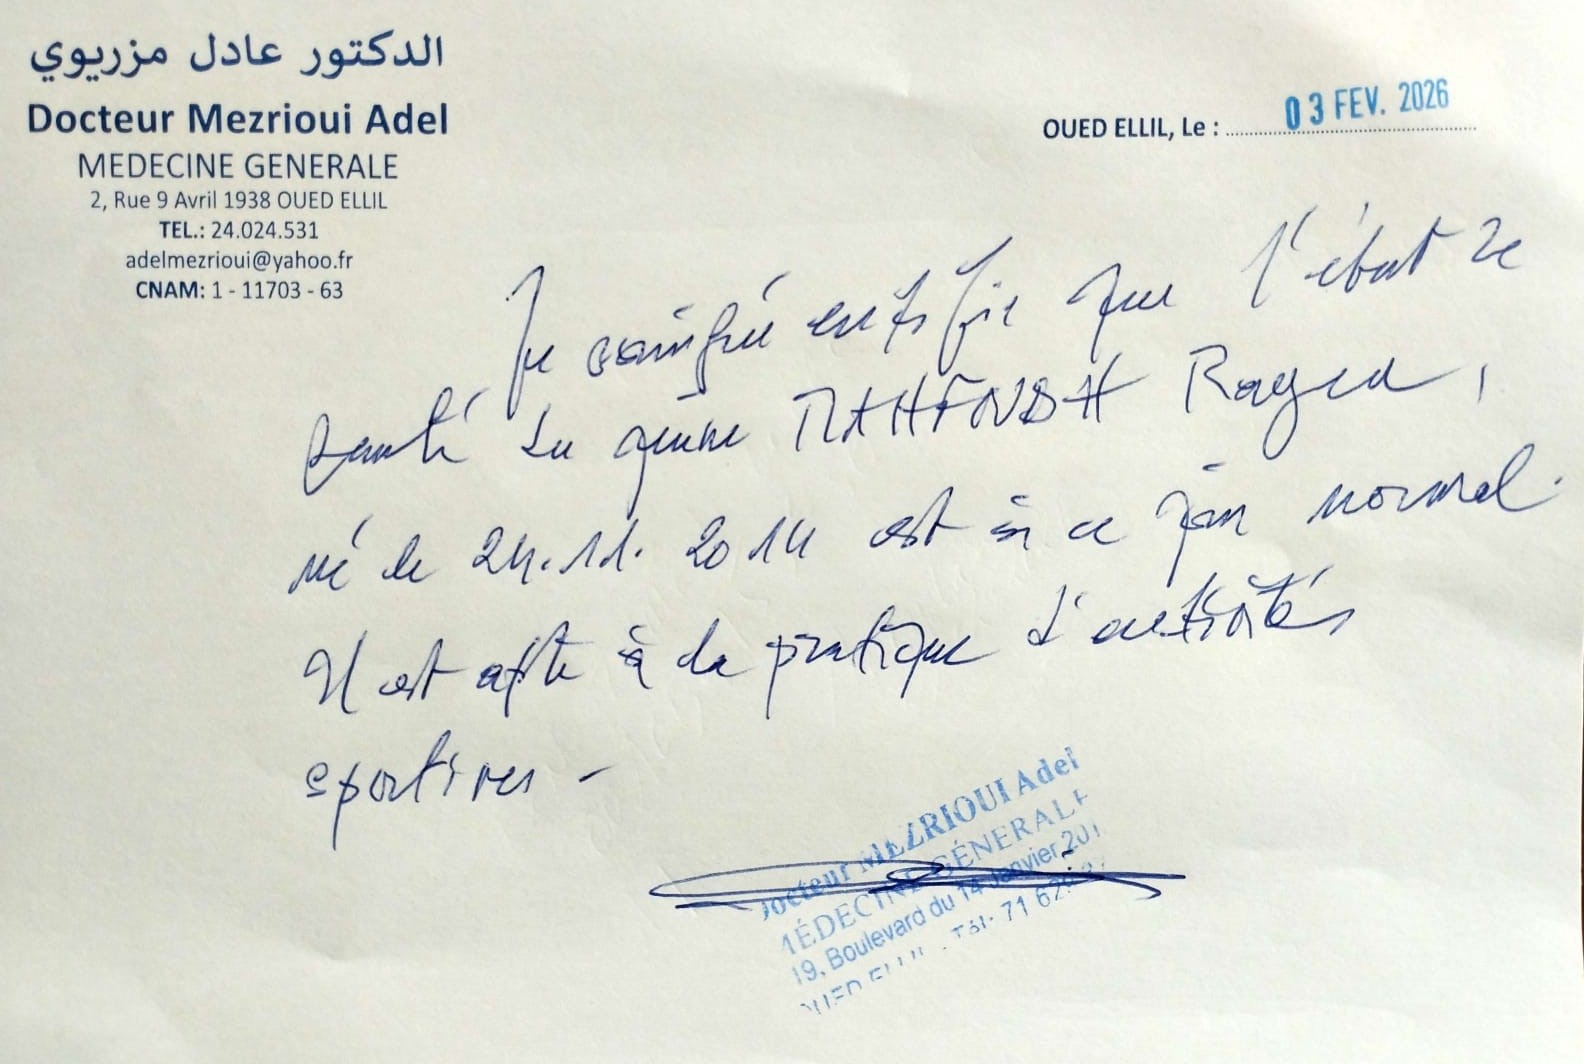 الدكتور عادل مزريوي
Docteur Mezrioui Adel
MEDECINE GENERALE
2, Rue 9 Avril 1938 OUED ELLIL
TEL.: 24.024.531
adelmezrioui@yahoo.fr
CNAM: 1 - 11703 - 63
OUED ELLIL, Le : 03 FEV. 2026
Je soussigné certifie que l'état de
santé du jeune MAHFOUDH Rayen,
né le 24.11.2014 est à ce jour normal.
Il est apte à la pratique d'activités
sportives -
Docteur MEZRIOUI Adel
MÉDECINE GÉNERALE
19, Boulevard du 14 Janvier 201
OUED ELLIL - Tél: 71 62